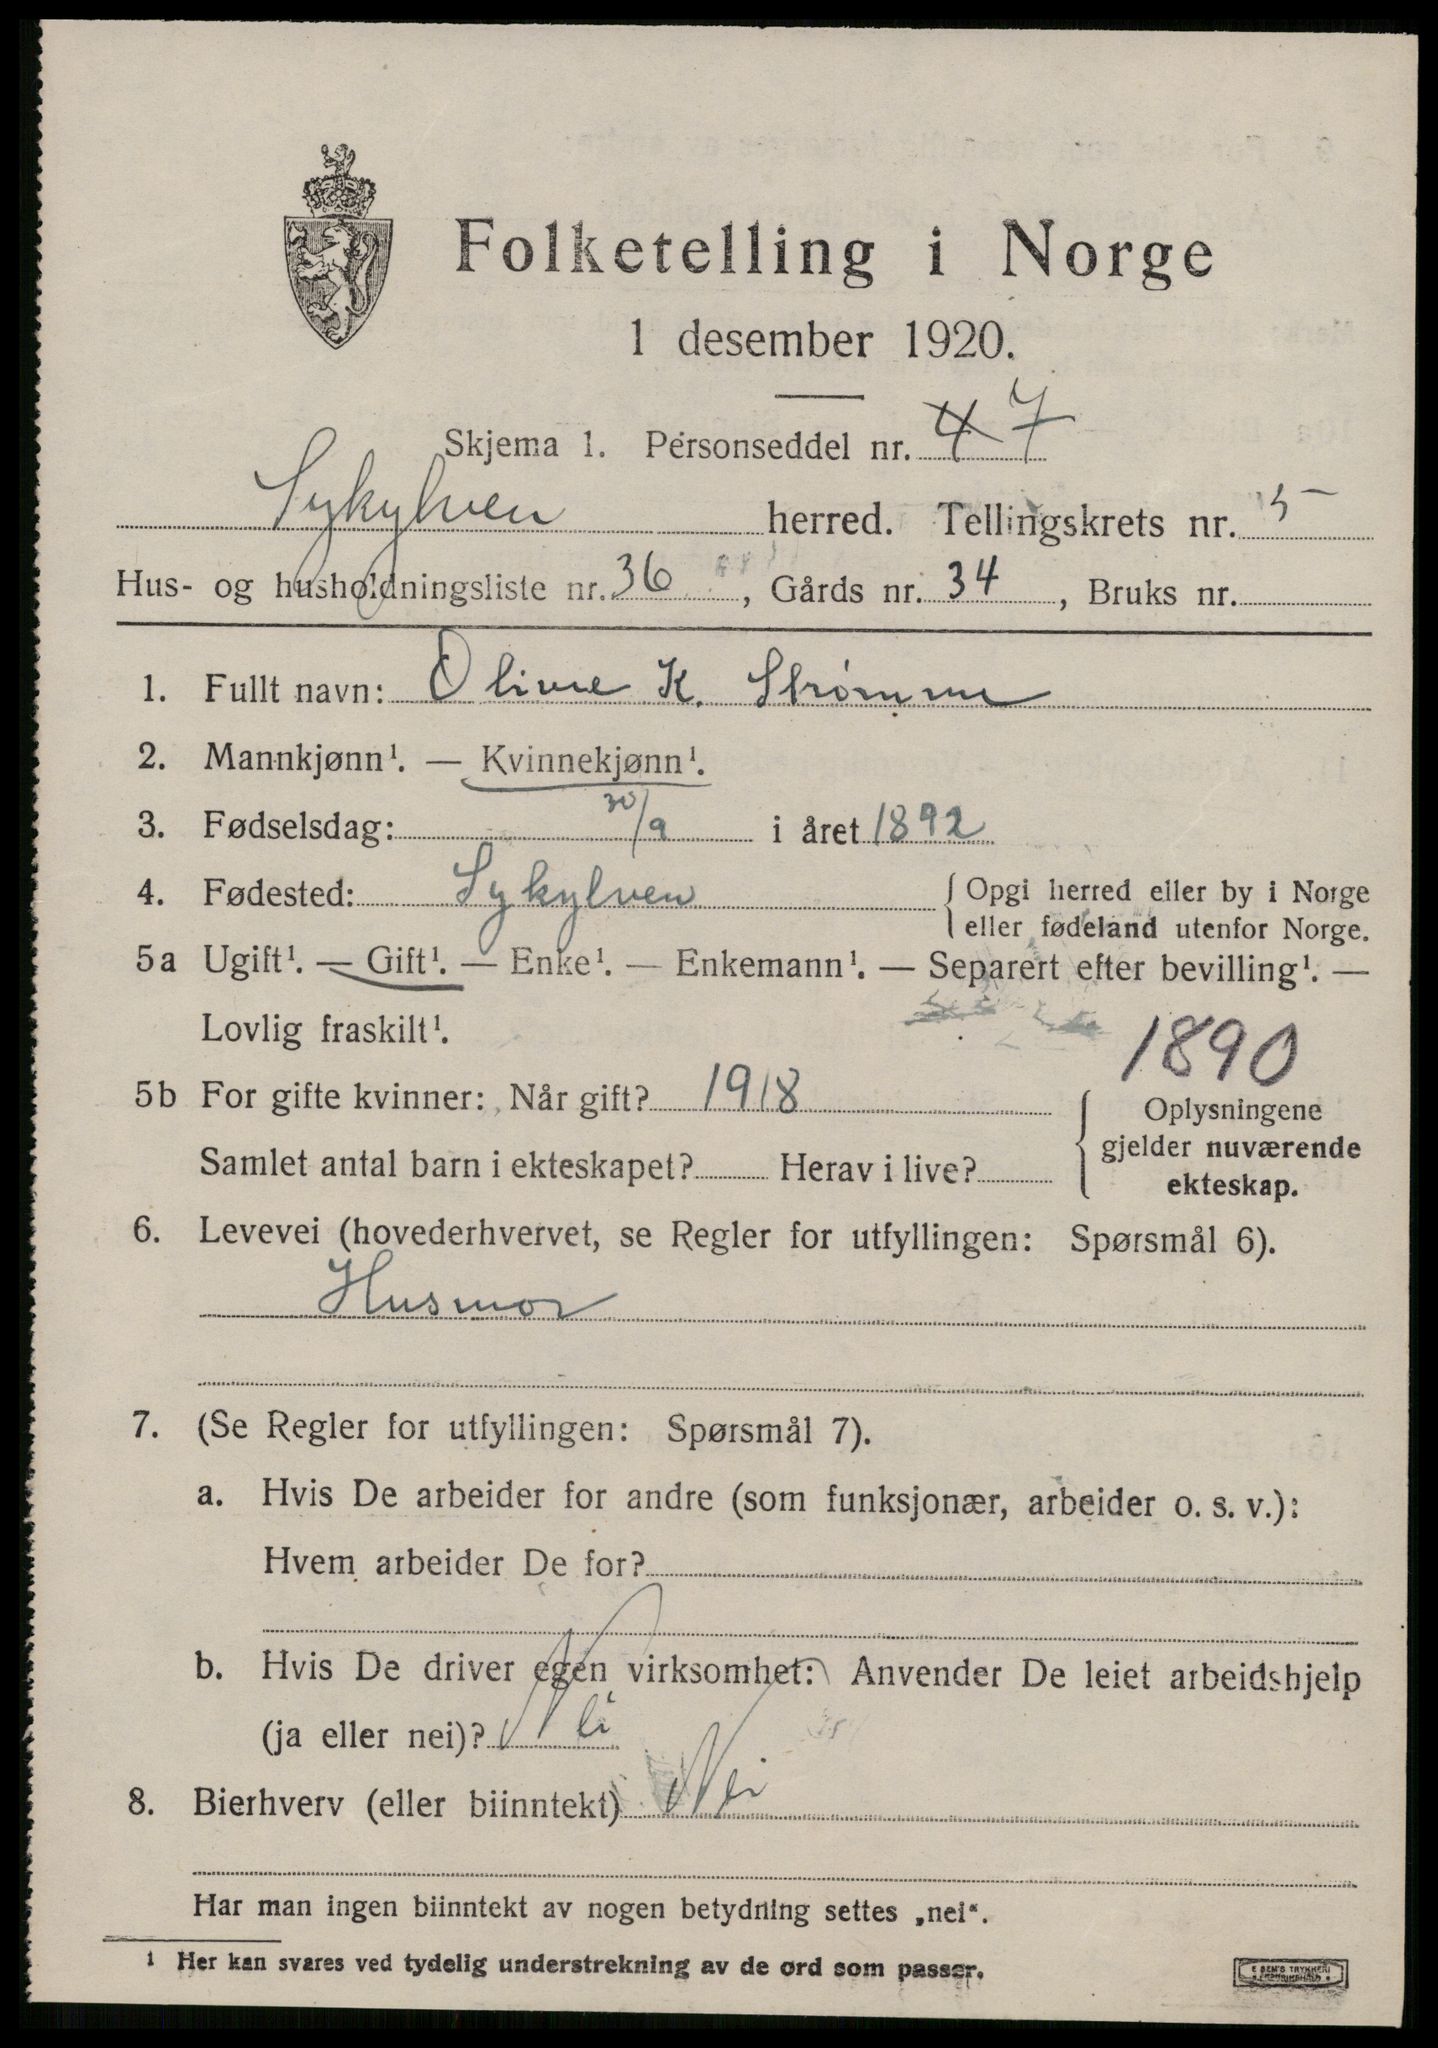 Folketelling i Norge
1 desember 1920.
Skjema 1. Personseddel nr. 4 7
Sykylven herred. Tellingskrets nr. 5
Hus- og husholdningsliste nr. 36, Gårds nr. 34, Bruks nr.
1. Fullt navn: Oline K. Strømme
2. Mannkjønn¹. — Kvinnekjønn¹.
3. Fødselsdag: 30/9 i året 1892
4. Fødested: Sykylven { Opgi herred eller by i Norge
eller fødeland utenfor Norge.
5a Ugift¹. — Gift¹. — Enke¹. — Enkemann¹. — Separert efter bevilling¹. —
Lovlig fraskilt¹.
1890
5b For gifte kvinner: Når gift? 1918
Samlet antal barn i ekteskapet? Herav i live?
{ Oplysningene
gjelder nuværende
ekteskap.
6. Levevei (hovederhvervet, se Regler for utfyllingen: Spørsmål 6).
Husmor
7. (Se Regler for utfyllingen: Spørsmål 7).
a. Hvis De arbeider for andre (som funksjonær, arbeider o. s. v.):
Hvem arbeider De for?
b. Hvis De driver egen virksomhet: Anvender De leiet arbeidshjelp
(ja eller nei)? Nei
8. Bierhverv (eller biinntekt) Nei
Har man ingen biinntekt av nogen betydning settes „nei“.
¹ Her kan svares ved tydelig understrekning av de ord som passer.